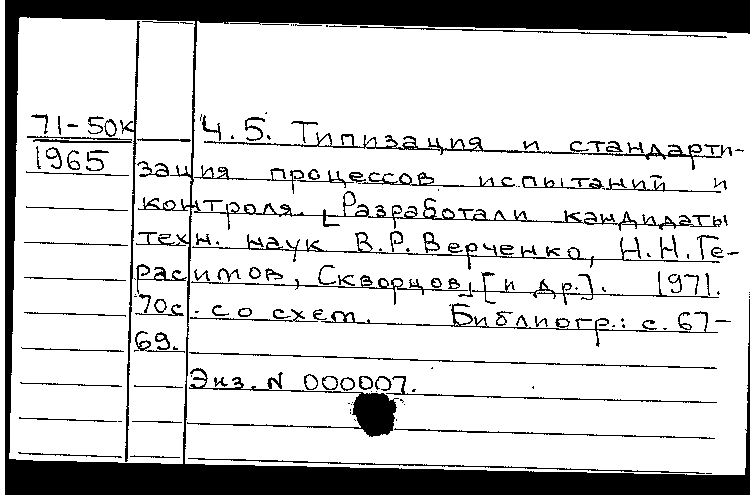 71-50к Ч.5. Типизация и стандарти-
1965 зация процессов испытаний и
контроля. [Разработали кандидаты
техн. наук В.Р.Верченко, Н.Н.Ге-
расимов, Скворцов] [и др.]. 1971.
70с. со схем. Библиогр.: с. 67-
69.
Экз. N 000007.